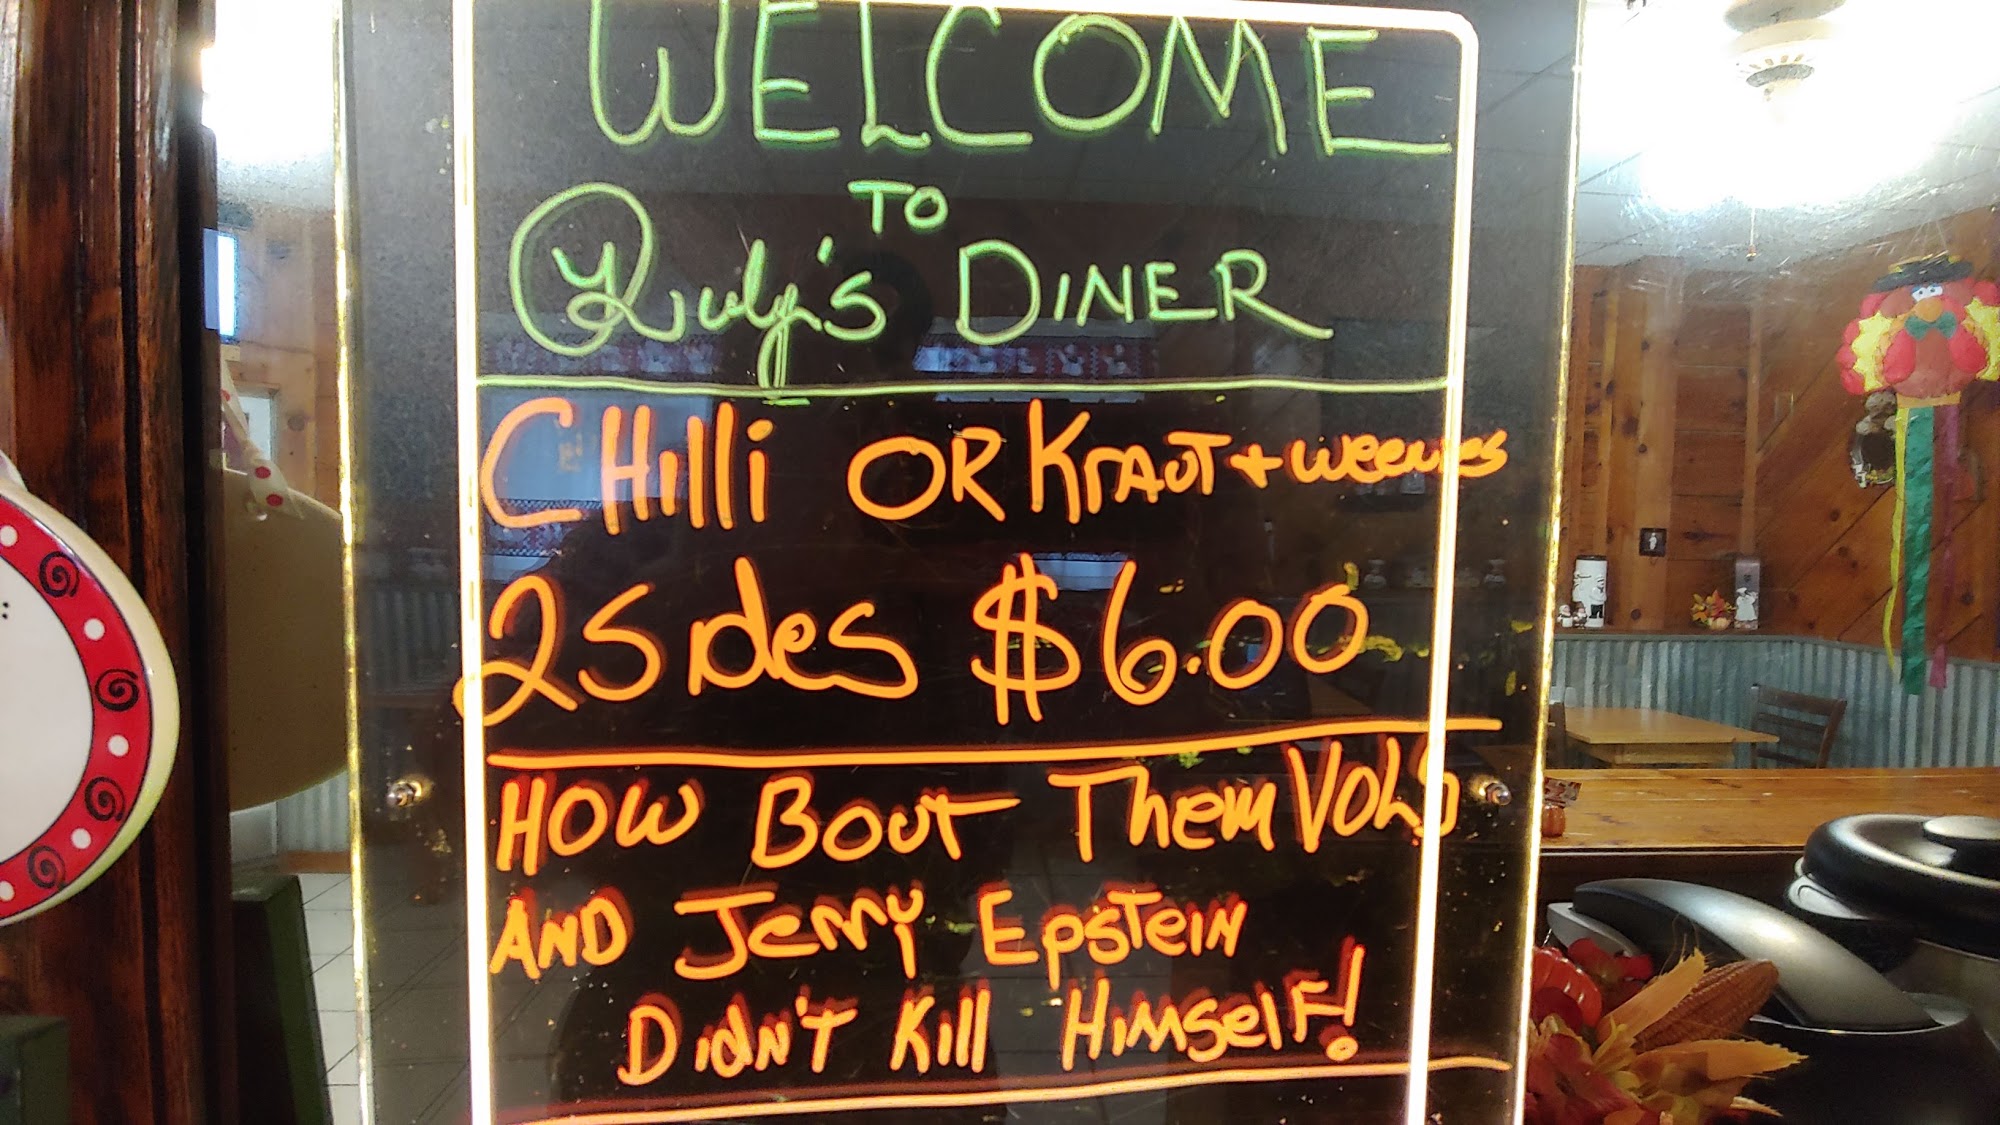 WELCOME
TO
Ruby's DINER
CHilli OR KRAUT + weenies
2 Sides $6.00
HOW BOUT THem VOLS
AND Jerry EpsTein
Didn'T Kill HimselF!